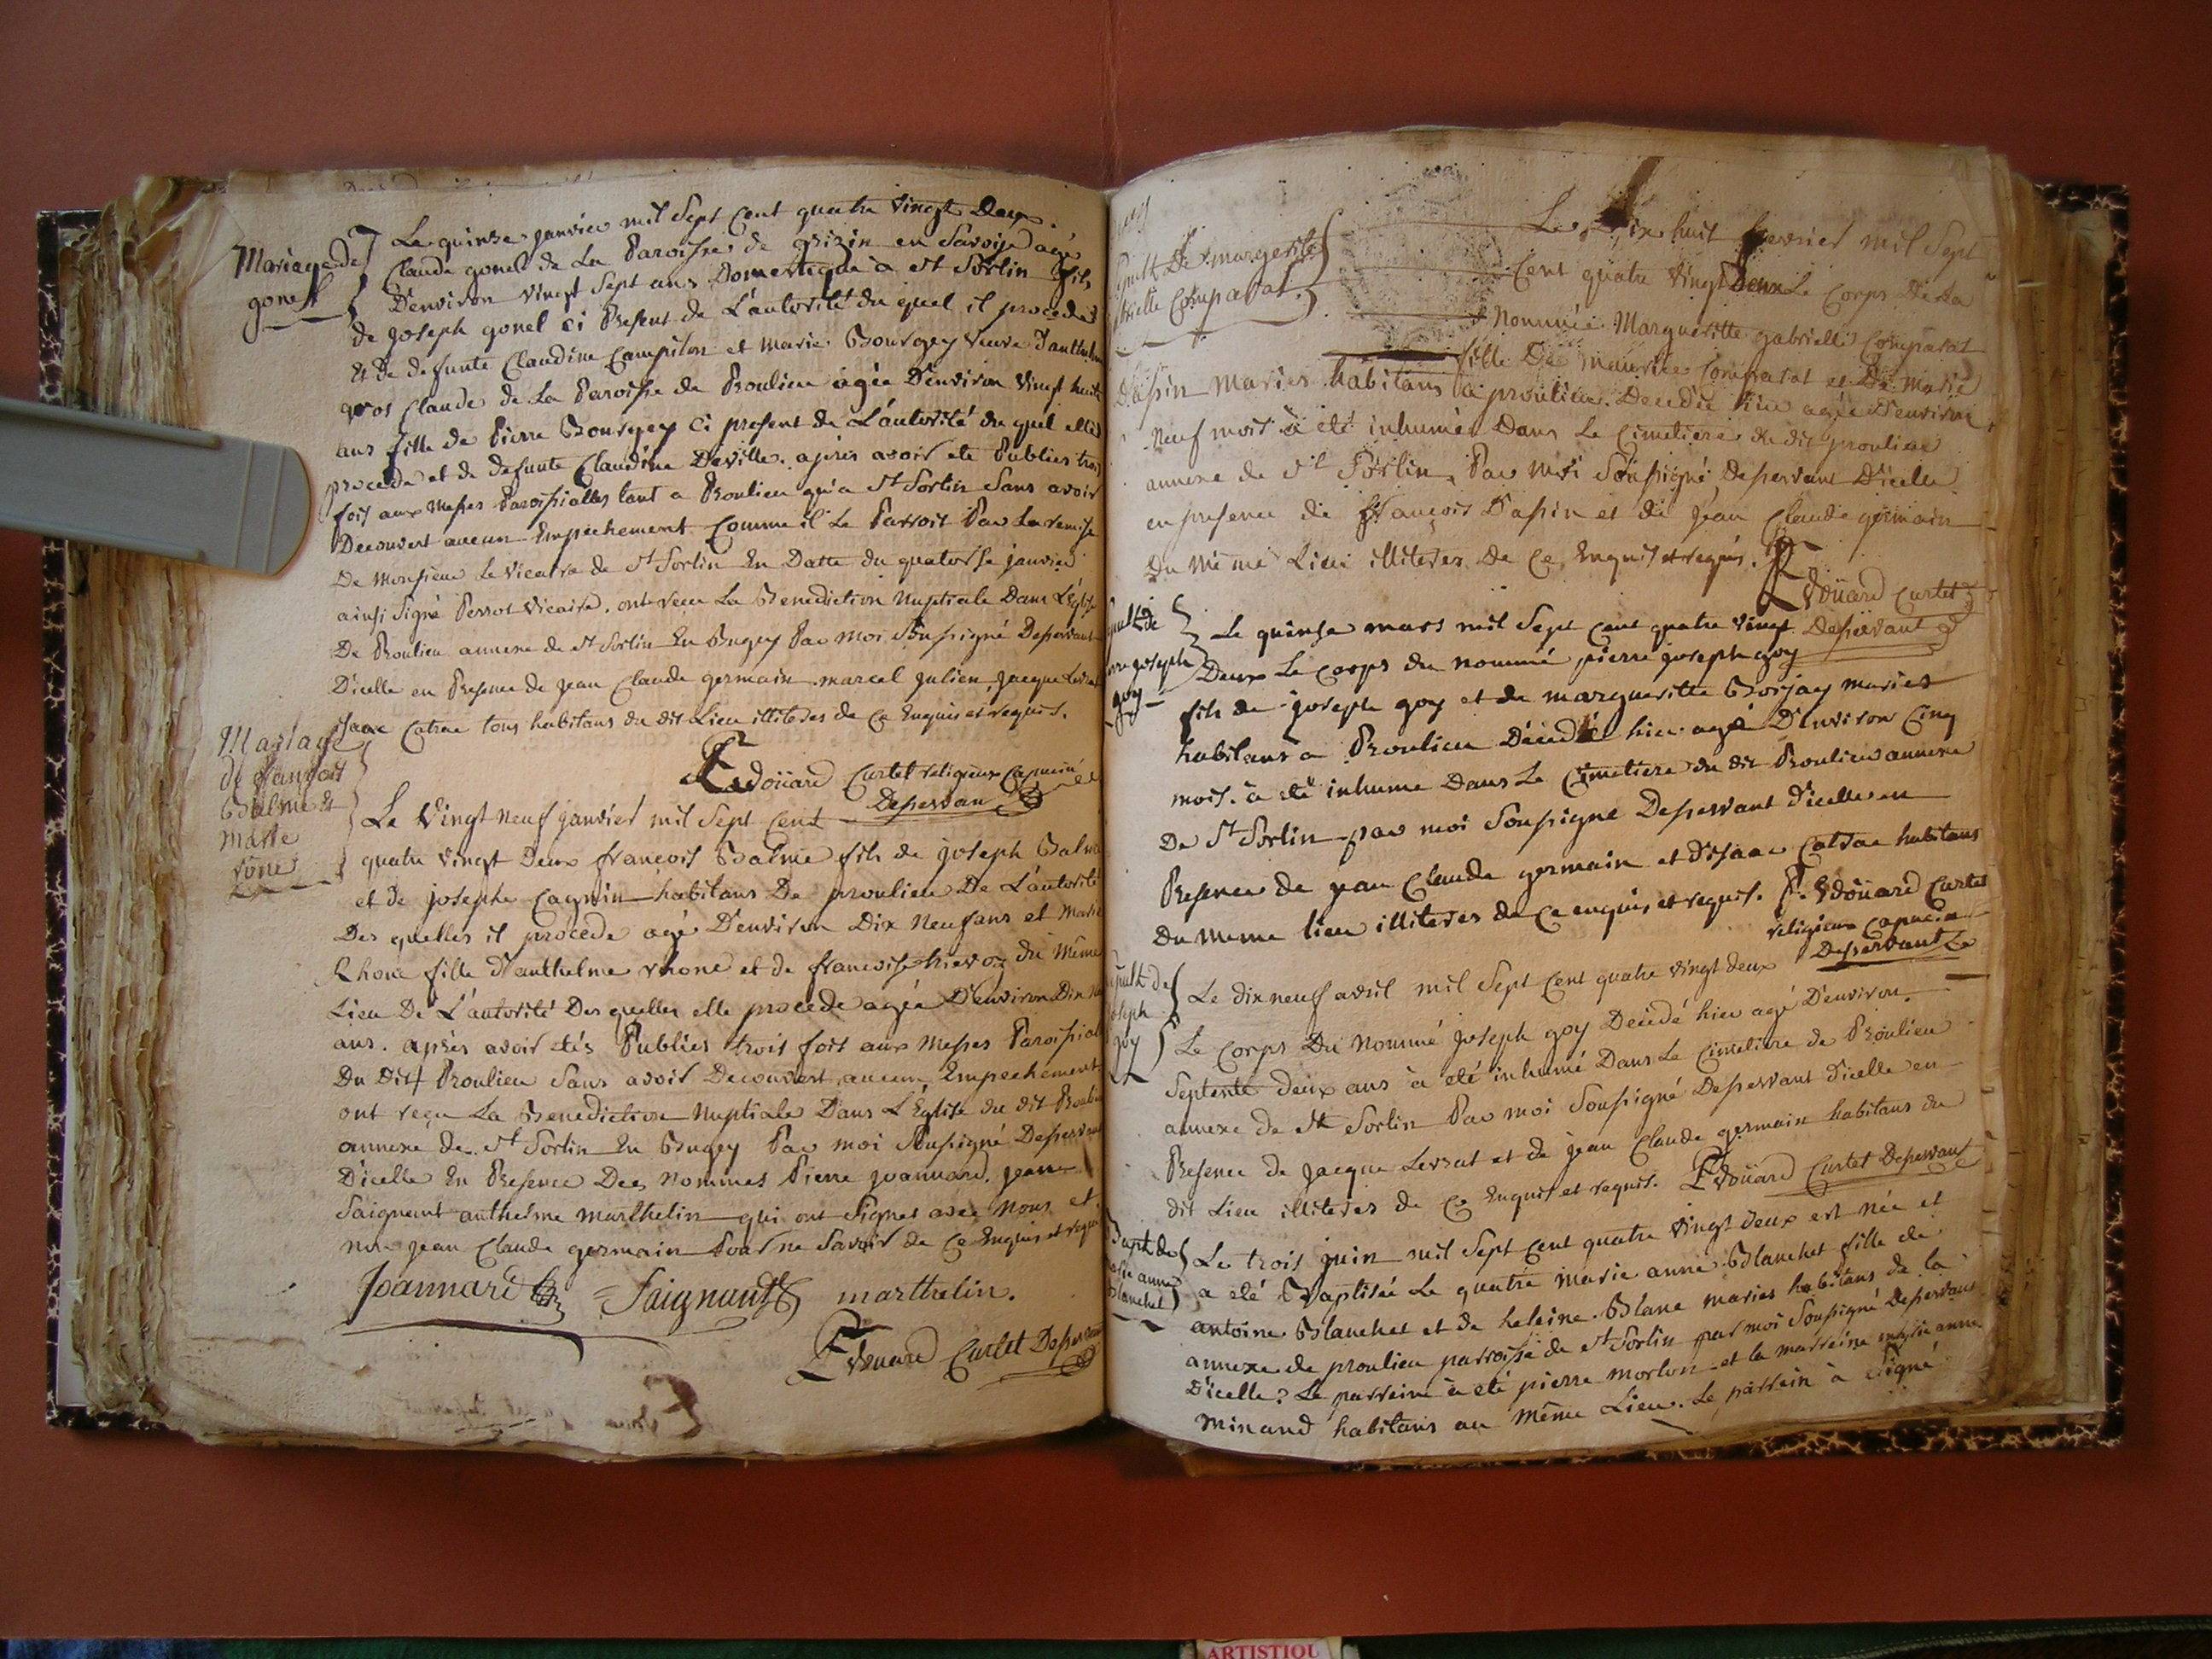 Mariage de
gonel
Le quinze janvier mil Sept Cent quatre vingt Deux
Claude gonel de La Paroisse de grizin en Savoije agé
D'environ vingt Sept ans Domestique a st Sorlin fils
de joseph gonel ci Present de L'autorité du quel il procede
Et de defunte Claudine Campilon et marie Bourgey veuve D'anthelme
gros Claude de La Paroisse de Proulieu agée D'environ vingt huit
ans fille de Pierre Bourgey ci present de L'autorité du quel elle
procede et de defunte Claudine Deville. après avoir ete Publies trois
fois aux Messes Paroissialles tant a Proulieu qu'a St Sorlin Sans avoir
Decouvert aucun Empechement Comme il Le Parroit Par La remise
De Monsieur Le vicaire de St Sorlin En Datte du quatorse janvier
ainsi Signé Perrot vicaire. ont recu La Benediction Nuptiale Dans L'Eglise
De Proulieu annexe de st Sorlin En Bugey Par moi Soussigné Desservant
D'icelle en Presence de jean Claude germain marcel julien, jacque Levrat
isaac Catrac tous habitans du dit Lieu illiteres de Ce Enquis et requis.
F Edoüard Curtet religieux Capucin
Desservan
Mariage
de françois
Balme Et
Marie
rône
Le vingt neuf janvier mil Sept Cent
quatre vingt Deux françois Balme fils de joseph Balme
et de josephe Cagnin habitans De proulieu De L'autorité
Des quelles il procéde agé D'environ Dix neuf ans et Marie
Rhone fille d'anthelme rhone et de francoise hievoz du Même
Lieu De L'autorité Des quelles elle procede agée D'environ Dix
ans. après avoir étés Publiés trois fois aux Messes Paroissial
Du Dit Proulieu Sans avoir Decouvert aucun Empechement
ont reçu La Benediction Nuptiale Dans L'Eglise du dit Proulieu
annexe de St Sorlin En Bugey Par moi Soussigné Desservant
D'icelle En Presence Des nommes Pierre joannard. jean
Saignant anthelme marthelin qui ont Signes avec Nous et
non jean Claude germain Pour ne Savoir de Ce Enquis et requis
Joannard Saignant marthelin.
F Edouard Curtet Desservant
De margerite
Comparat
Le Dix huit fevrier mil Sept
Cent quatre vingt Deux Le Corps De La
Nommée Margueritte gabrielle Comparat
fille De Maurice Comparat et De Marie
Dassin Maries habitans a proulieu. Decedée hier agée D'environ
Neuf mois à été inhumée Dans Le Cimetiere du dit proulieu
annexe de St Sorlin, Par Moi Soussigné, Desservant D'icelle
en presence de françois Dassin et de jean Claude germain
Du Même Lieu illiteres De Ce Enquis et requis. F
Edoüard Curtet
Desservant
joseph
goy
Le quinse mars mil Sept Cent quatre vingt
Deux Le Corps du nommé pierre joseph goy
fils de joseph goy et de margueritte Borjay maries
habitans a Proulieu Décedé hier agé D'environ Cinq
mois. à eté inhume Dans Le Cimetiere du dit Proulieu annexe
De St Sorlin par moi Soussigne Desservant d'icelle en
Presence de jean Claude germain et d'isaac Catrac habitans
Du meme lieu illiteres de Ce enquis et requis. F. Edoüard Curtet
religieux Capucin
Desservant
goy
Le dix neuf avril mil Sept Cent quatre vingt deux
Le Corps Du Nommé joseph goy Decédé hier agé D'environ
Septente deux ans à eté inhumé Dans Le Cimetiere de Proulieu
annexe de St Sorlin Par moi Soussigné Desservant d'icelle en
Presence de jacque Levrat et de jean Claude germain habitans du
dit Lieu illiteres de Ce Enquis et requis. F Edoüard Curtet Desservant
Bapt de
anne
Blanchet
Le trois juin mil Sept Cent quatre vingt deux est née et
a eté Baptisée Le quatre Marie anne Blanchet fille de
antoine Blanchet et de heleine Blanc maries habitans de la
annexe de proulieu parroisse de st Sorlin par moi Soussigné Desservant
D'icelle. Le parrein à eté pierre morlon et la marreine marie anne
Minand habitans au Même Lieu. Le parrein à Signé
ARTISTIQU